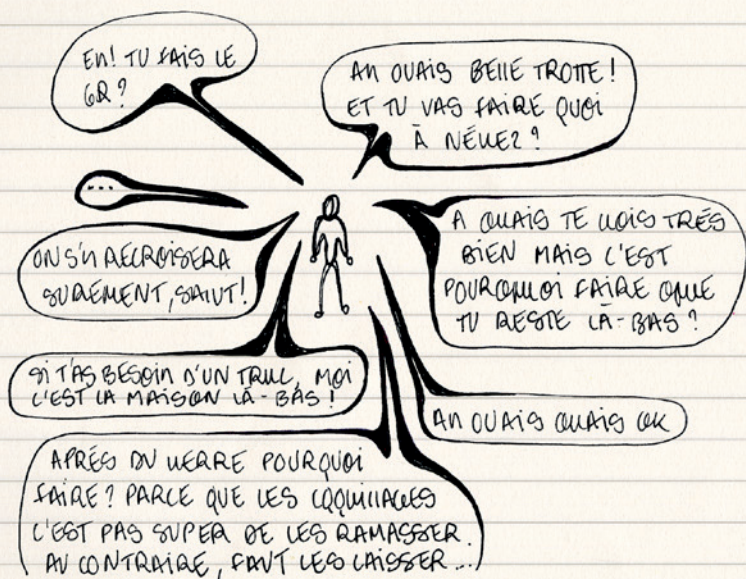 EH! TU FAIS LE
GR?
AH OUAIS BELLE TROTTE!
ET TU VAS FAIRE QUOI
À NÉVEZ?
...
A OUAIS JE VOIS TRÈS
BIEN MAIS C'EST
POURQUOI FAIRE QUE
TU RESTE LÀ-BAS?
ON S'Y RECROISERA
SUREMENT, SALUT!
SI T'AS BESOIN D'UN TRUC, MOI
C'EST LA MAISON LÀ-BAS!
AH OUAIS OUAIS OK
APRÈS DU VERRE POURQUOI
FAIRE? PARCE QUE LES COQUILLAGES
C'EST PAS SUPER DE LES RAMASSER.
AU CONTRAIRE, FAUT LES LAISSER...